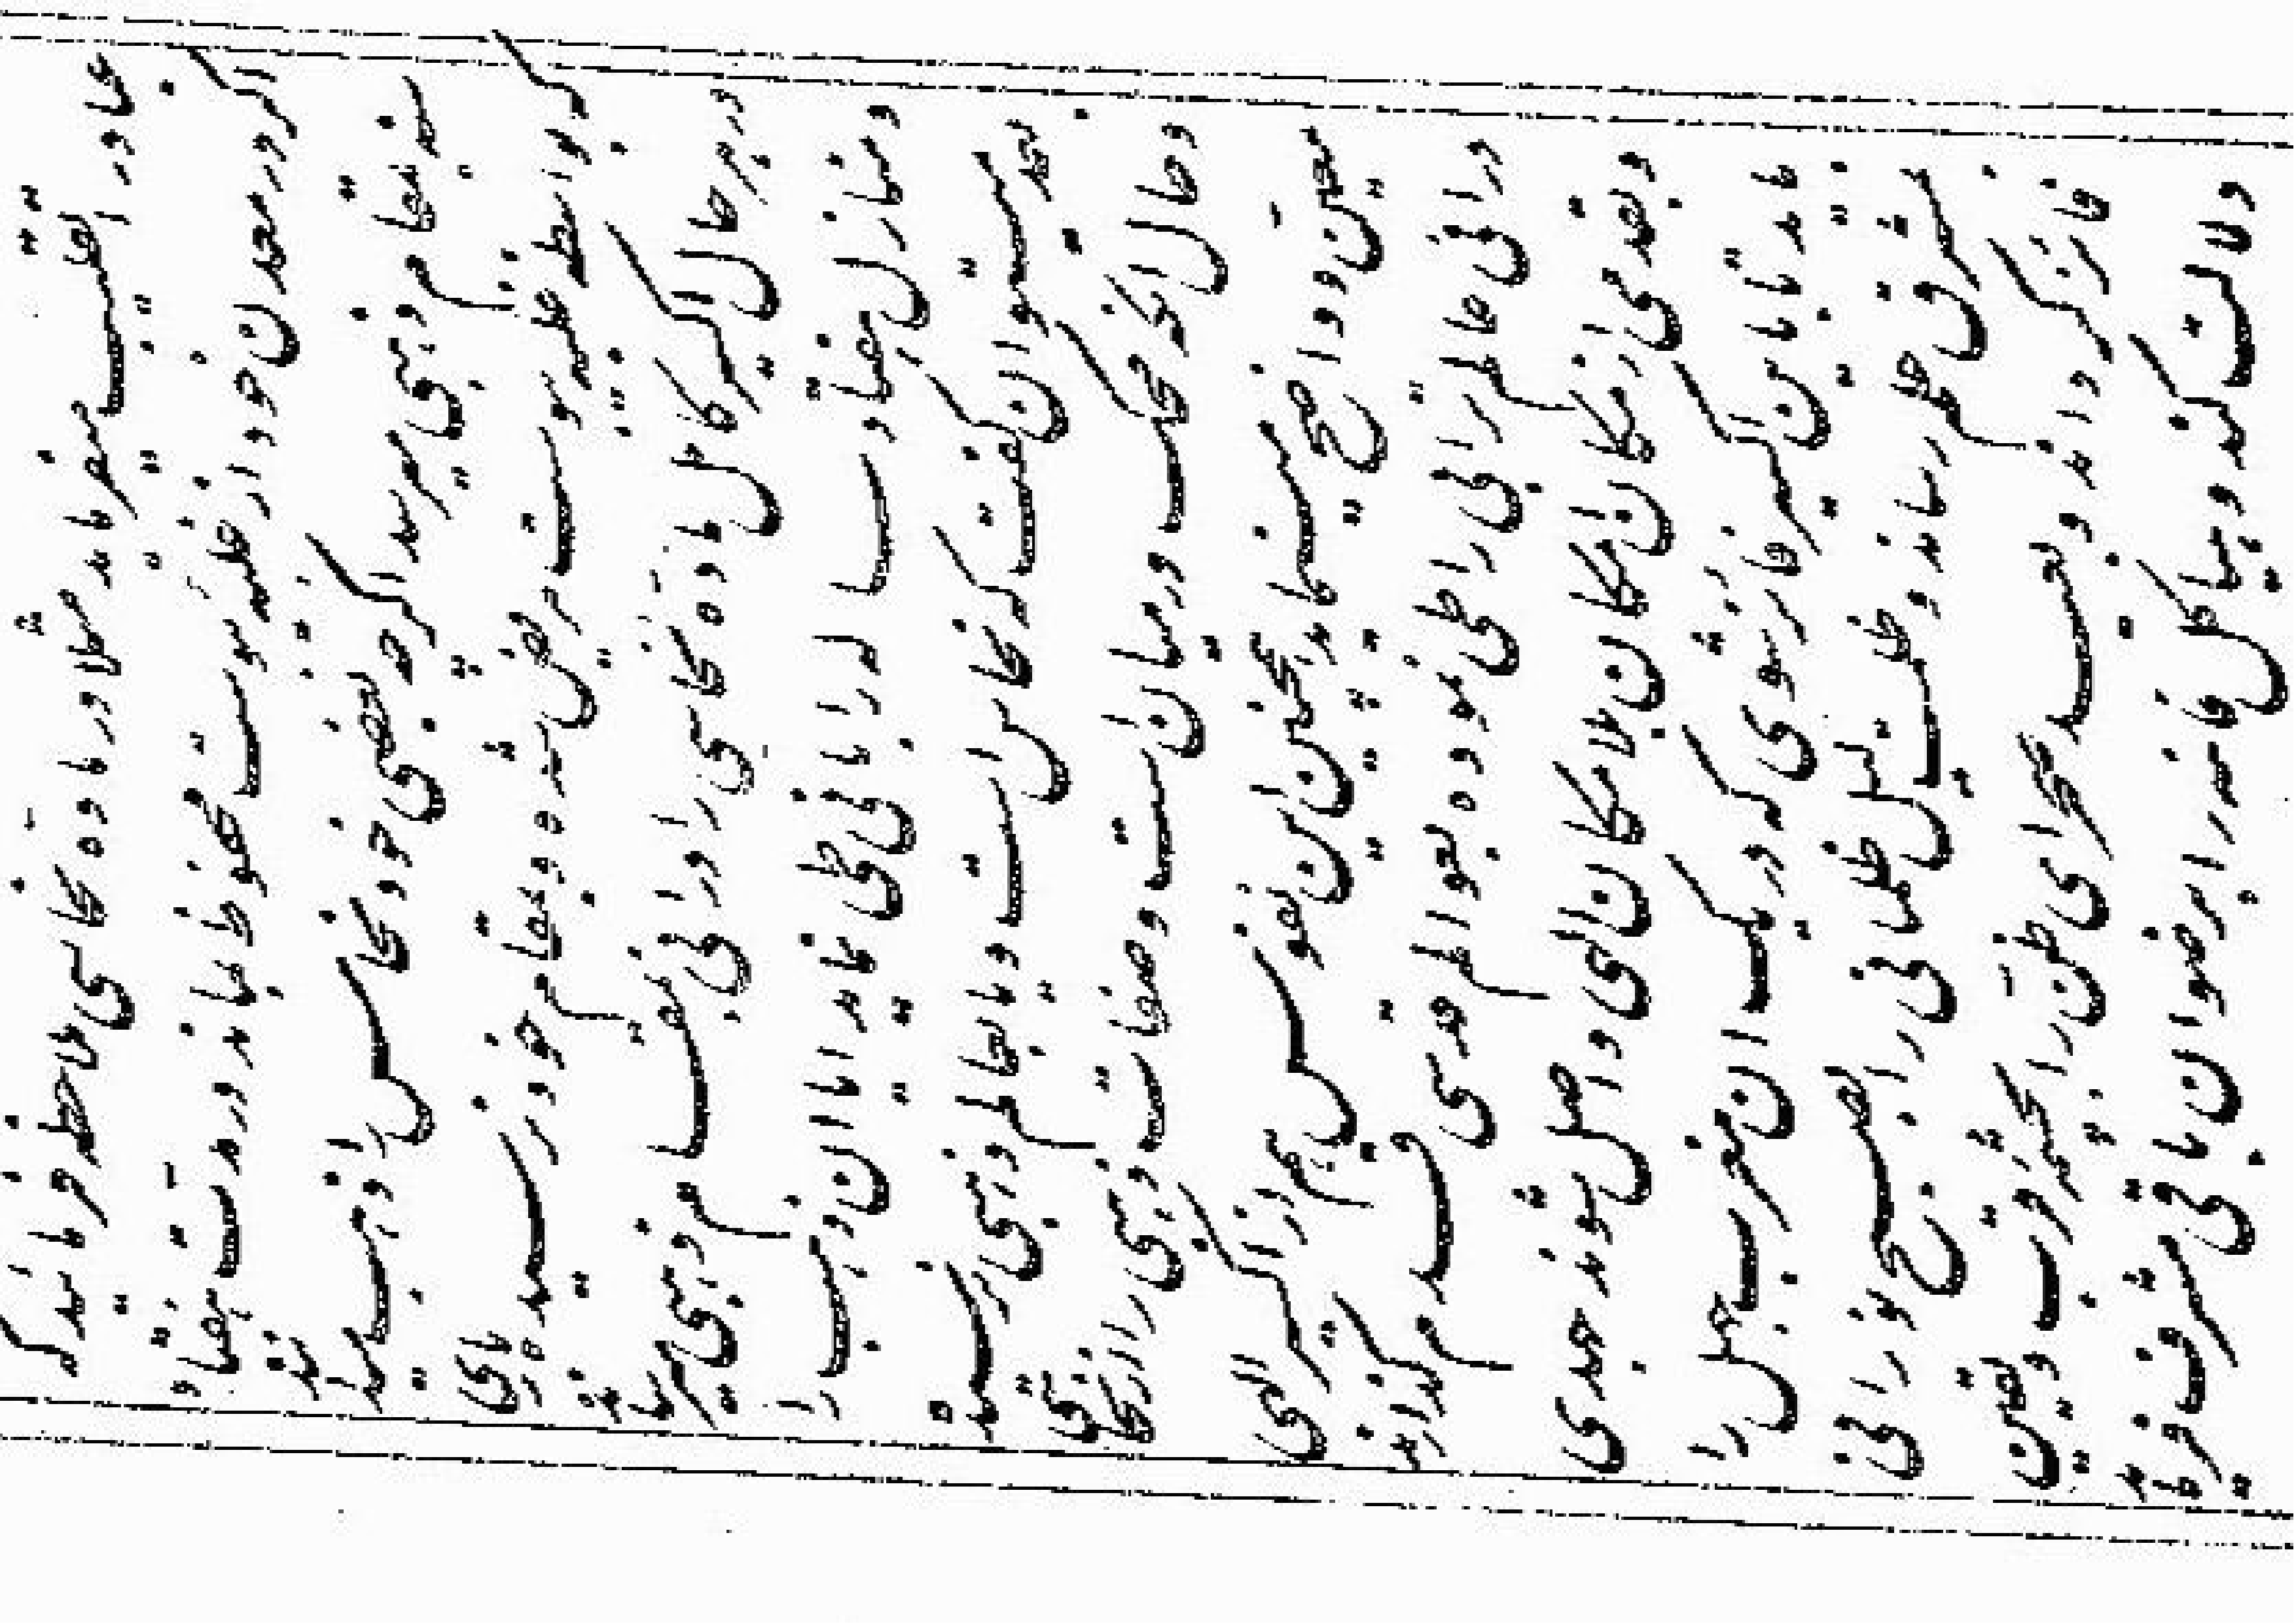 مثلا در ماده نحاسی ملاحظه فرمائید که
اگر در معدن خود از غلبه یبوست محفوظ بماند در مدت هفتاد
سنه بمقام ذهبی میرسد اگر چه بعضی خود نحاس را ذهب میدانند
که بواسطه غلبه یبوست مریض شده و بمقام خود نرسیده باری
در هر حال اکسیر کامل ماده نحاسی را در آنی بمقام ذهبی میرساند
و منازل هفتاد ساله را بآنی طی نماید آیا آن ذهب را
بعد میتوان گفت که نحاس است و یا بعالم ذهبی نرسیده
و حال آنکه محک در میان است و صفات ذهبی را از نحاسی
معین و واضح مینماید همچنین این نفوس هم از اکسیر الهی
در آنی عالم ترابی را طی نموده بعوالم قدسی قدم گذارند
و بقدمی از مکان امکان بلامکان الهی واصل شوند جهدی
باید تا باین اکسیر فائز شوی که در یک آن مغرب جهل را
بمشرق علم رساند و ظلمت لیل ظلمانی را بصبح نورانی
فائز گرداند و بعید صحرای ظن را بچشمه قرب و یقین
دلالت کند و هیاکل فانیه را برضوان باقی مشرف فرماید